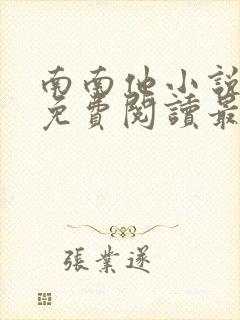 南南他小說
免費閱讀最
張業遂